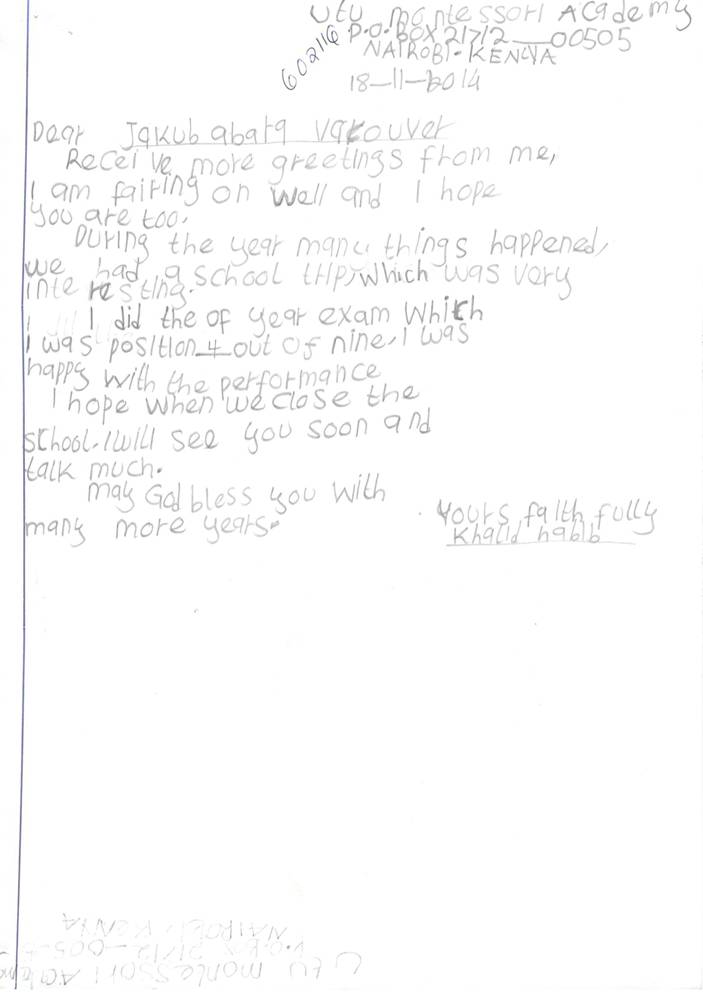 Utu montessori Academy
602116 P.O.BOX 21712 — 00505
NAIROBI - KENYA
18-11-2014
Dear Jakub abara Vacouver
Receive more greetings from me,
I am fairing on well and I hope
you are too.
During the year many things happened,
we had a school trip, which was very
interesting.
I did the of year exam which
I was position 4 out of nine, I was
happy with the performance
I hope when we close the
school. I will see you soon and
talk much.
may God bless you with
many more years.
Yours faith fully
Khalid habib
NAIROBI, KENYA
P.O.BX 21712-005
Utu montessori Academ